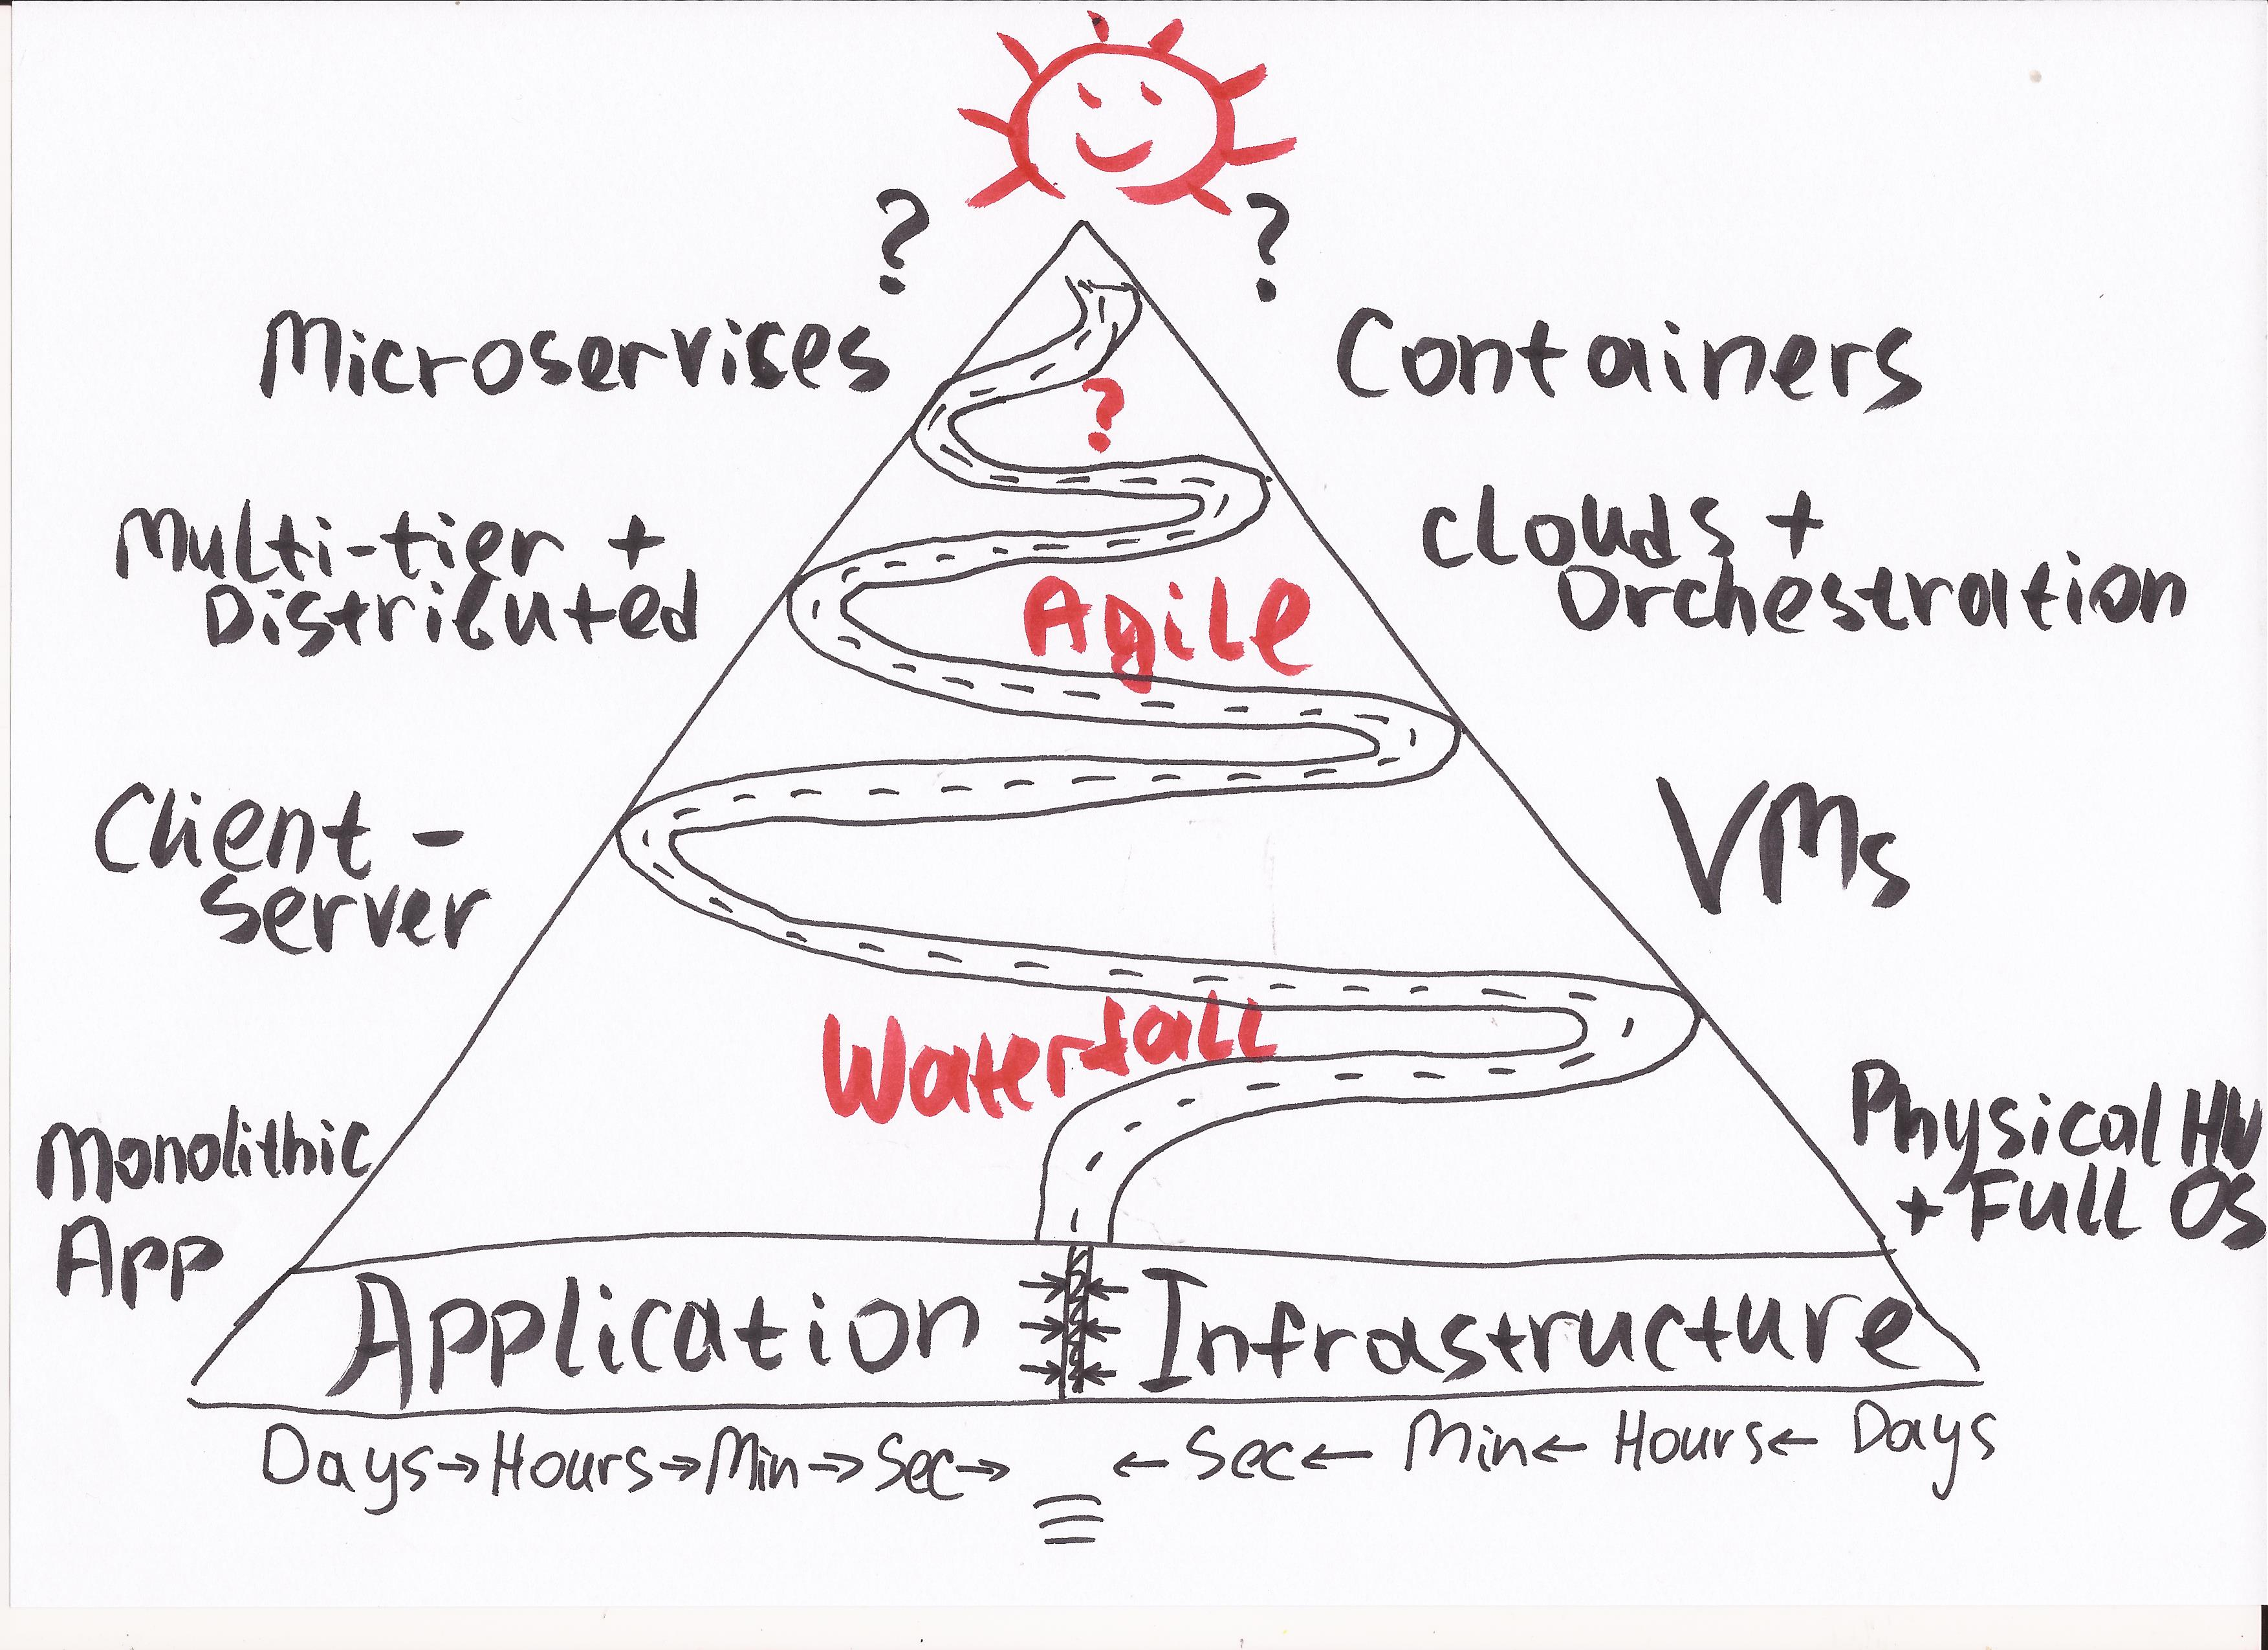 ? ?
Microservices
Containers
?
Multi-tier +
Distributed
Clouds +
Orchestration
Agile
Client -
Server
VMs
Waterfall
Monolithic
App
Physical HW
+ Full OS
Application
Infrastructure
Days→Hours→Min→Sec→
←Sec← Min← Hours← Days